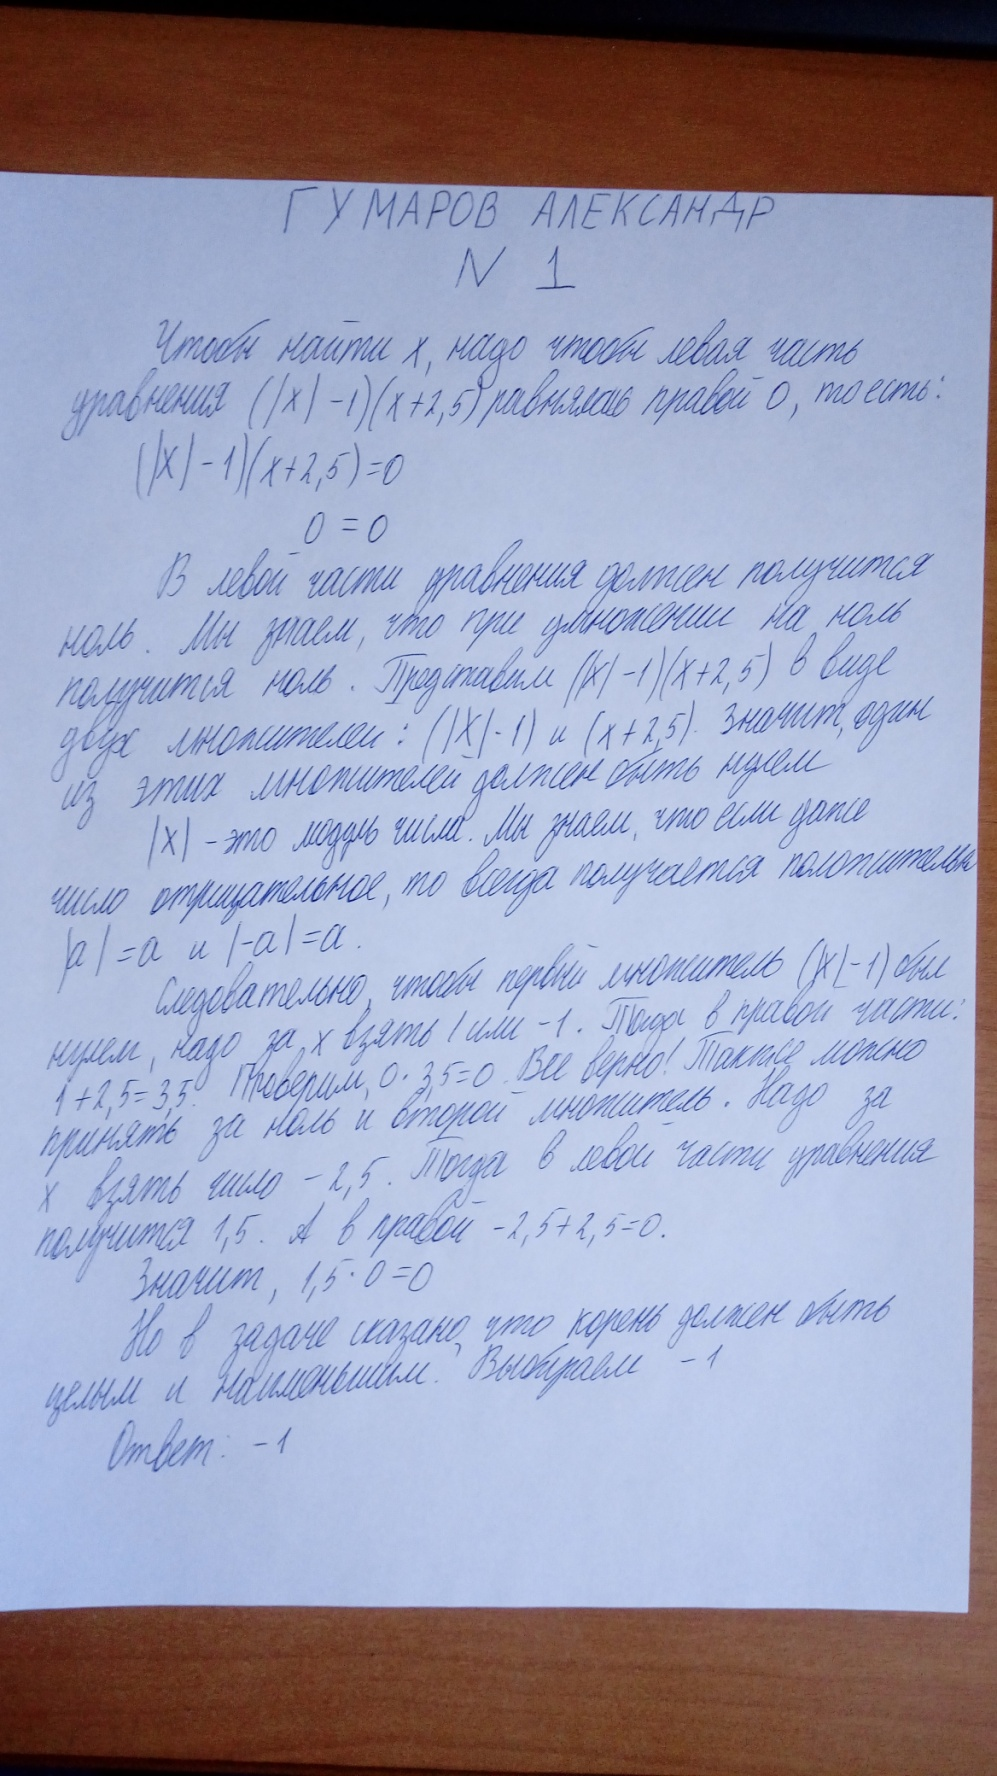 ГУМАРОВ АЛЕКСАНДР
N 1
Чтобы найти x, надо чтобы левая часть
уравнения (|x|-1)(x+2,5) равнялась правой 0, то есть:
(|x|-1)(x+2,5)=0
0=0
В левой части уравнения должен получится
ноль. Мы знаем, что при умножении на ноль
получится ноль. Представим (|x|-1)(x+2,5) в виде
двух множителей: (|x|-1) и (x+2,5). Значит, один
из этих множителей должен быть нулем
|x| - это модуль числа. Мы знаем, что если даже
число отрицательное, то всегда получается положительн
|a|=a и |-a|=a.
Следовательно, чтобы первый множитель (|x|-1) был
нулем, надо за x взять 1 или -1. Тогда в правой части:
1+2,5=3,5. Проверим, 0·3,5=0. Все верно! Также можно
принять за ноль и второй множитель. Надо за
x взять число -2,5. Тогда в левой части уравнения
получится 1,5. А в правой -2,5+2,5=0.
Значит, 1,5·0=0
Но в задаче сказано, что корень должен быть
целым и наименьшим. Выбираем -1
Ответ: -1